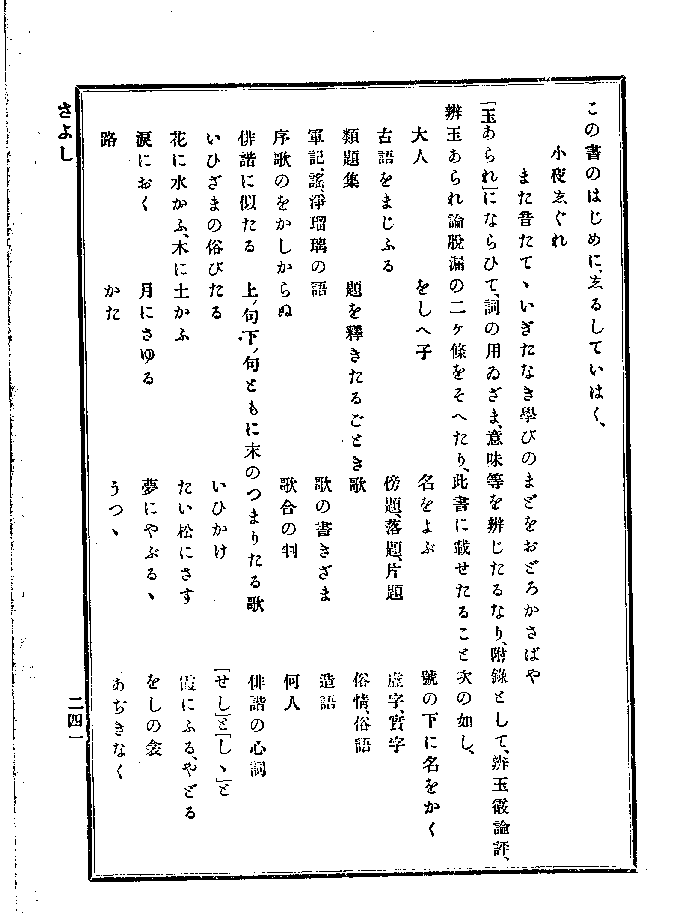 この書のはじめに、ゑるしていはく、
小夜ゑぐれ
また昔たてゝいぎたなき學びのまどをおどろかさばや
「玉あられ」にならひて、詞の用ゐざま、意味等を辨じたるなり、附錄として、辨玉霰論評、
辨玉あられ論脫漏の二ヶ條をそへたり、此書に載せたること次の如し、
大人　をしへ子　名をよぶ　號の下に名をかく
古語をまじふる　傍題、落題、片題　虛字、實字
類題集　題を釋きたるごとき歌　俗情、俗語
軍記、謠、淨瑠璃の語　歌の書きざま　造語
序歌のをかしからぬ　歌合の判　何人
俳諧に似たる　上ノ句、下ノ句ともに末のつまりたる歌　俳諧の心詞
いひざまの俗びたる　いひかけ　「せし」と「しゝ」と
花に水かふ、木に土かふ　たい松にさす　霞にふる、やどる
淚におく　月にさゆる　夢にやぶるゝ　をしの衾
路　かた　うつゝ　あぢきなく
さよし
二四一